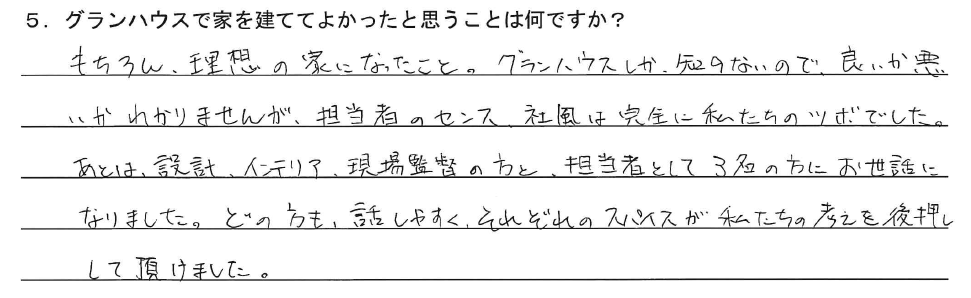 ５．グランハウスで家を建ててよかったと思うことは何ですか？
もちろん、理想の家になったこと。グランハウスしか、知らないので、良いか悪
いか わかりませんが、担当者のセンス、社風は完全に私たちのツボでした。
あとは、設計、インテリア、現場監督の方と、担当者として３名の方にお世話に
なりました。どの方も、話しやすく、それぞれのスパイスが私たちの考えを後押し
して頂けました。